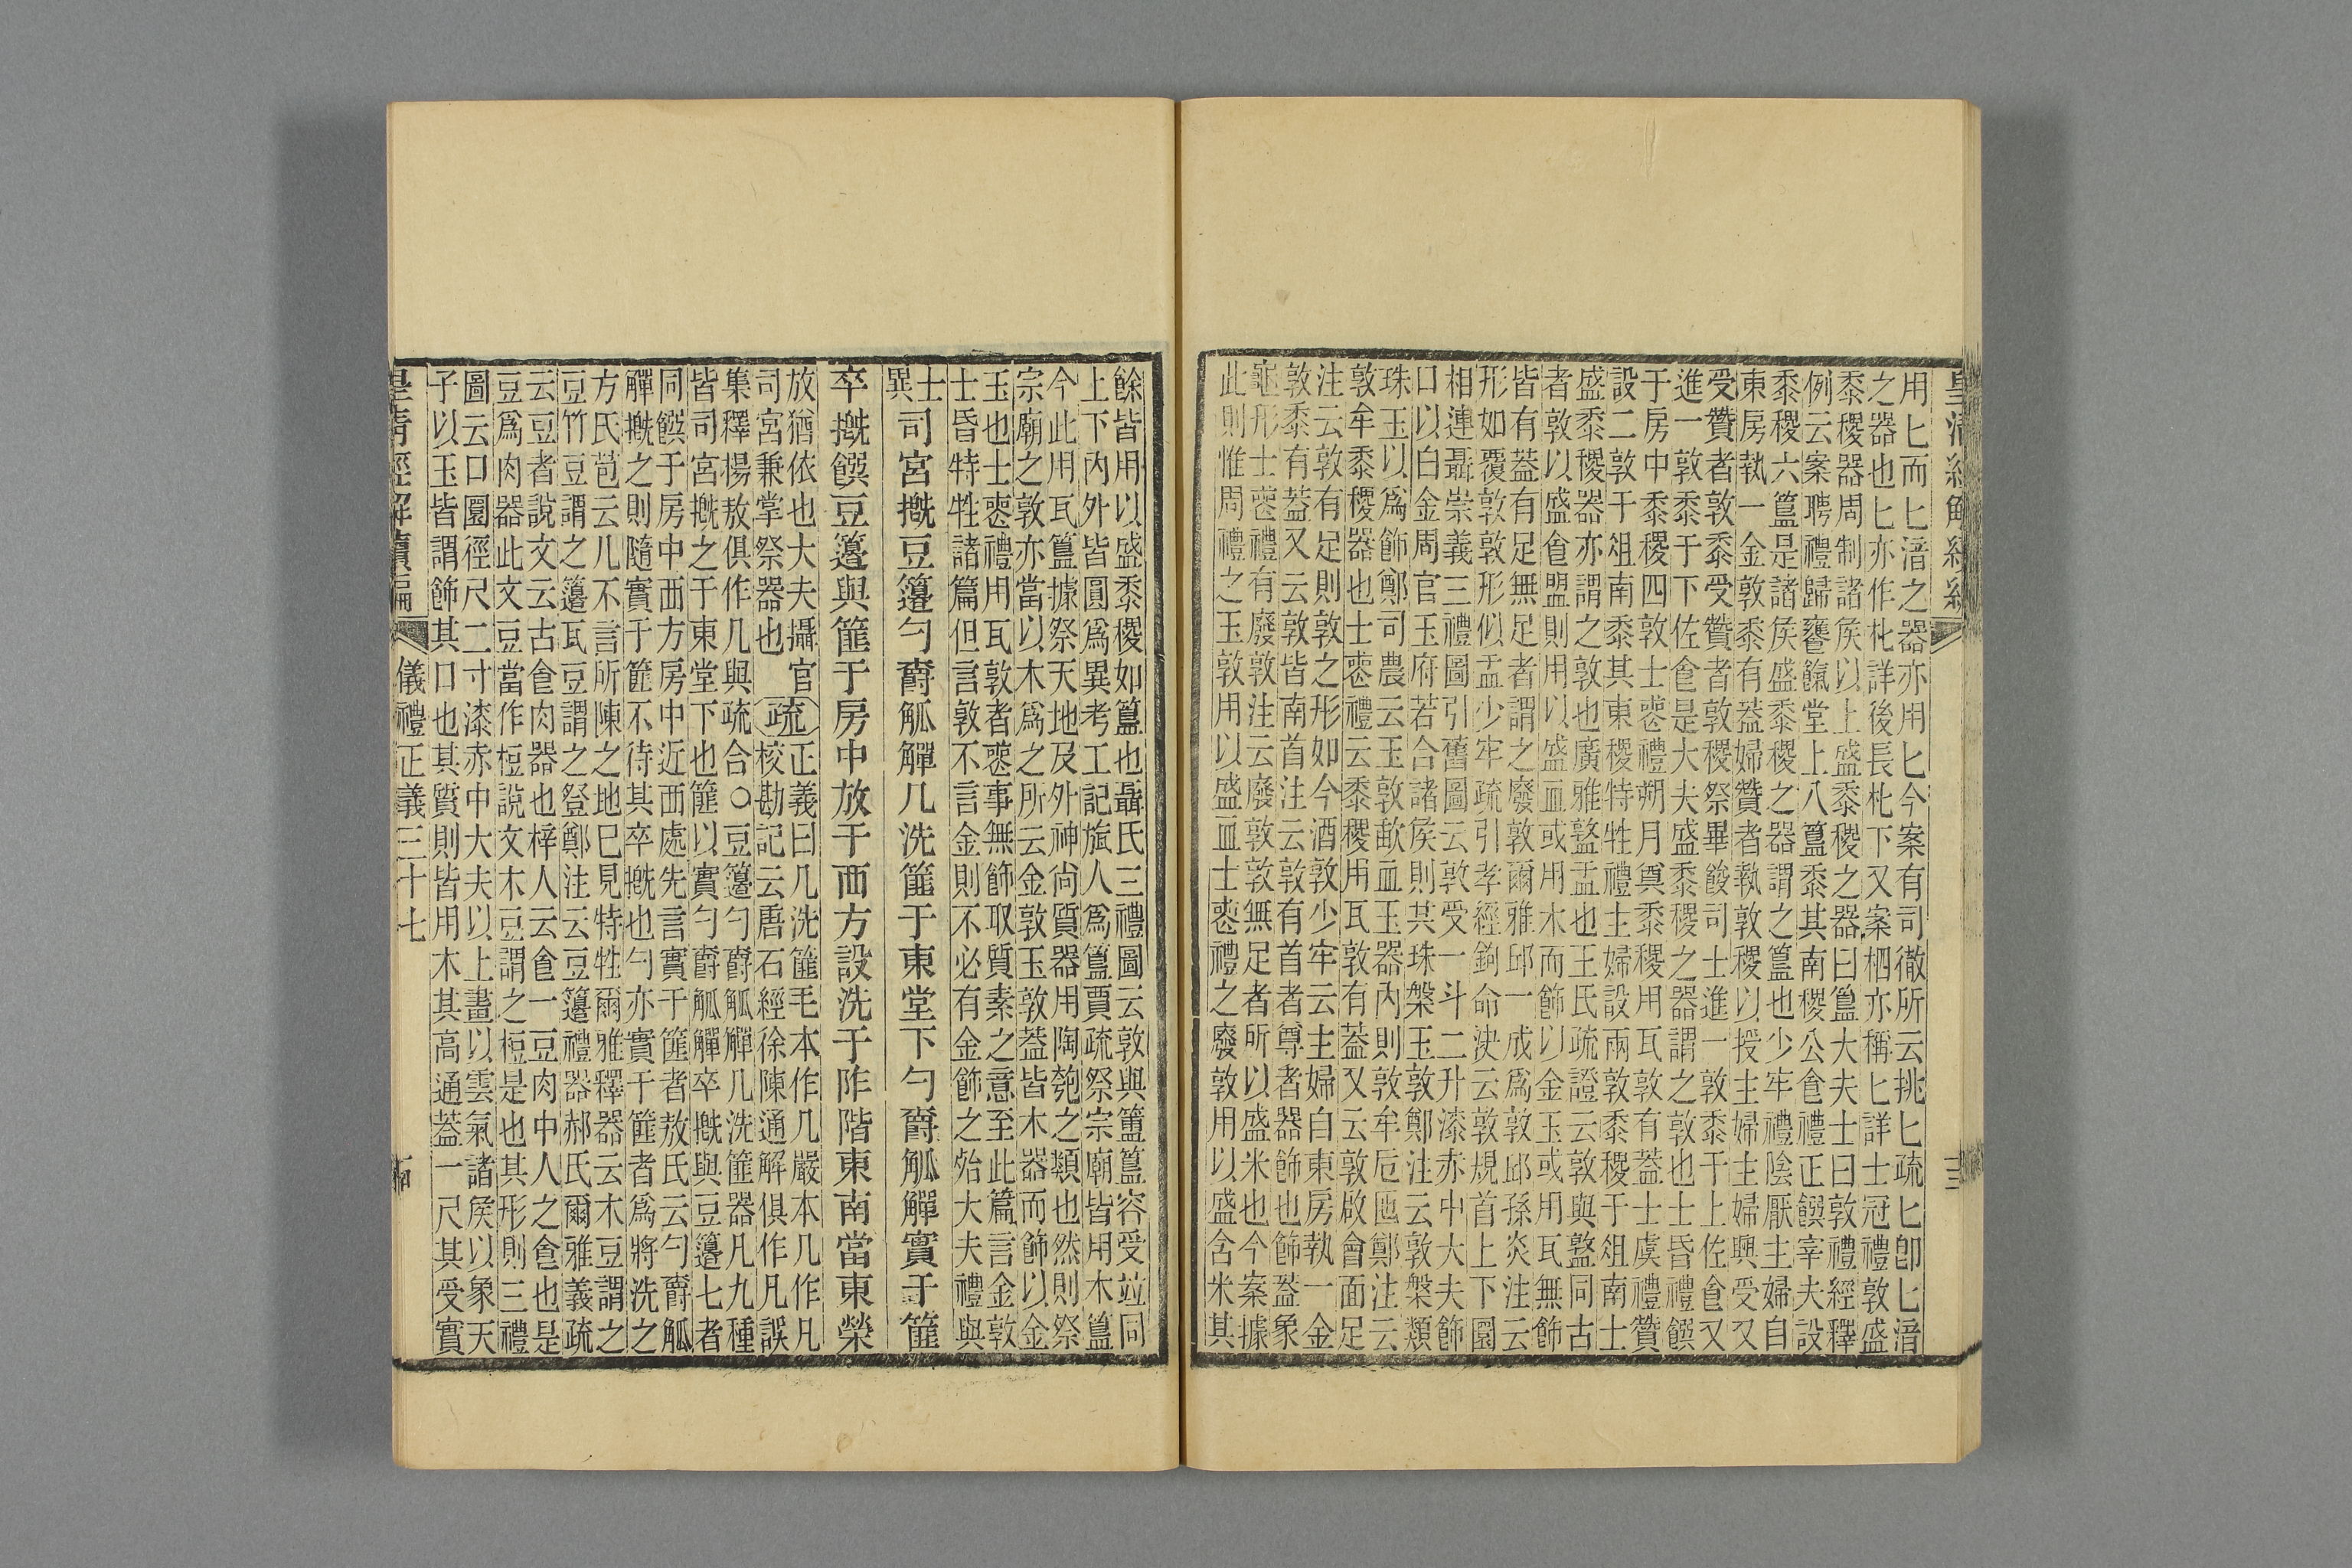 用匕而匕湆之器亦用匕今案有司徹所云挑匕疏匕卽匕湆
之器也匕亦作朼詳後長朼下又案柶亦稱匕詳士冠禮敦盛
黍稷器周制諸矦以上盛黍稷之器曰簋大夫士曰敦禮經釋
例云案聘禮歸饔餼堂上八簋黍其南稷公食禮正饌宰夫設
黍稷六簋是諸矦盛黍稷之器謂之簋也少牢禮陰厭主婦自
東房執一金敦黍有蓋婦贊者執敦稷以授主婦主婦興受又
受贊者敦黍受贊者敦稷祭畢餕司士進一敦黍于上佐食又
進一敦黍于下佐食是大夫盛黍稷之器謂之敦也士昏禮饌
于房中黍稷四敦士喪禮朔月奠黍稷用瓦敦有蓋士虞禮贊
設二敦于俎南黍其東稷特牲禮主婦設兩敦黍稷于俎南士
盛黍稷器亦謂之敦也廣雅䥗盂也王氏疏證云敦與䥗同古
者敦以盛食盟則用以盛血或用木而飾以金玉或用瓦無飾
皆有蓋有足無足者謂之廢敦爾雅邱一成爲敦敦邱孫炎注云
形如覆敦敦形似盂少牢疏引孝經鉤命決云敦規首上下圜
相連聶崇義三禮圖引舊圖云敦受一斗二升漆赤中大夫飾
口以白金周官玉府若合諸矦則共珠槃玉敦鄭注云敦槃類
珠玉以爲飾鄭司農云玉敦歃血玉器內則敦牟卮匜鄭注云
敦牟黍稷器也士喪禮云黍稷用瓦敦有蓋又云敦啟會面足
注云敦有足則敦之形如今酒敦少牢云主婦自東房執一金
敦黍有蓋又云敦皆南首注云敦有首者尊者器飾也飾蓋象
龜形士喪禮有廢敦注云廢敦敦無足者所以盛米也今案據
此則惟周禮之玉敦用以盛血士喪禮之廢敦用以盛含米其
餘皆用以盛黍稷如簋也聶氏三禮圖云敦與簠簋容受竝同
上下內外皆圓爲異考工記旊人爲簋賈疏祭宗廟皆用木簋
今此用瓦簋據祭天地及外神尙質器用陶匏之類也然則祭
宗廟之敦亦當以木爲之所云金敦玉敦蓋皆木器而飾以金
玉也士喪禮用瓦敦者喪事無飾取質素之意至此篇言金敦
士昏特牲諸篇但言敦不言金則不必有金飾之殆大夫禮與
士
異
司宮摡豆籩勺爵觚觶几洗篚于東堂下勺爵觚觶實于篚
卒摡饌豆籩與篚于房中放于西方設洗于阼階東南當東榮
放猶依也大夫攝官
司宮兼掌祭器也
疏
正義曰几洗篚毛本作几嚴本几作凡
校勘記云唐石經徐陳通解俱作凡誤
集釋楊敖俱作几與疏合○豆籩勺爵觚觶几洗篚器凡九種
皆司宮摡之于東堂下也篚以實勺爵觚觶卒摡與豆籩七者
同饌于房中西方房中近西處先言實于篚者敖氏云勺爵觚
觶摡之則隨實于篚不待其卒摡也勺亦實于篚者爲將洗之
方氏苞云几不言所陳之地已見特牲爾雅釋器云木豆謂之
豆竹豆謂之籩瓦豆謂之登鄭注云豆籩禮器郝氏爾雅義疏
云豆者說文云古食肉器也梓人云食一豆肉中人之食也是
豆爲肉器此文豆當作梪說文木豆謂之梪是也其形則三禮
圖云口圜徑尺二寸漆赤中大夫以上畫以雲氣諸矦以象天
子以玉皆謂飾其口也其質則皆用木其高通蓋一尺其受實
皇清經解續編
儀禮正義三十七